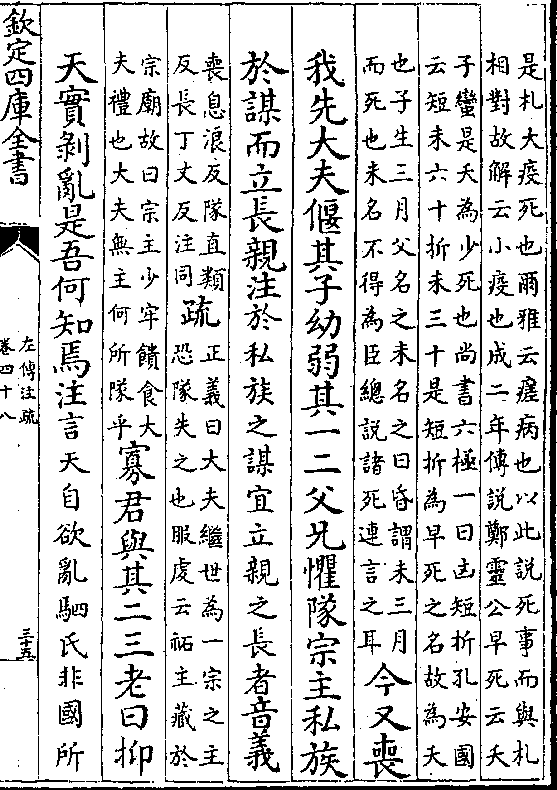 是札大疫死也爾雅云瘥病也以此說死事而與札
相對故解云小疫也成二年傳說鄭靈公早死云夭
子蠻是夭為少死也尚書六極一曰凶短折孔安國
云短未六十折未三十是短折為早死之名故為夭
也子生三月父名之未名之曰昏謂未三月
而死也未名不得為臣總說諸死連言之耳
今又喪
我先大夫偃其子幼弱其一二父兄懼隊宗主私族
於謀而立長親注於私族之謀宜立親之長者音義
喪息浪反隊直類
反長丁丈反注同
疏
正義曰大夫繼世為一宗之主
恐隊失之也服虔云祏主藏於
宗廟故曰宗主少牢饋食大
夫禮也大夫無主何所隊乎
寡君與其二三老曰抑
天實剝亂是吾何知焉注言天自欲亂駟氏非國所
欽定四庫全書
左傳注疏
卷四十八
三十五